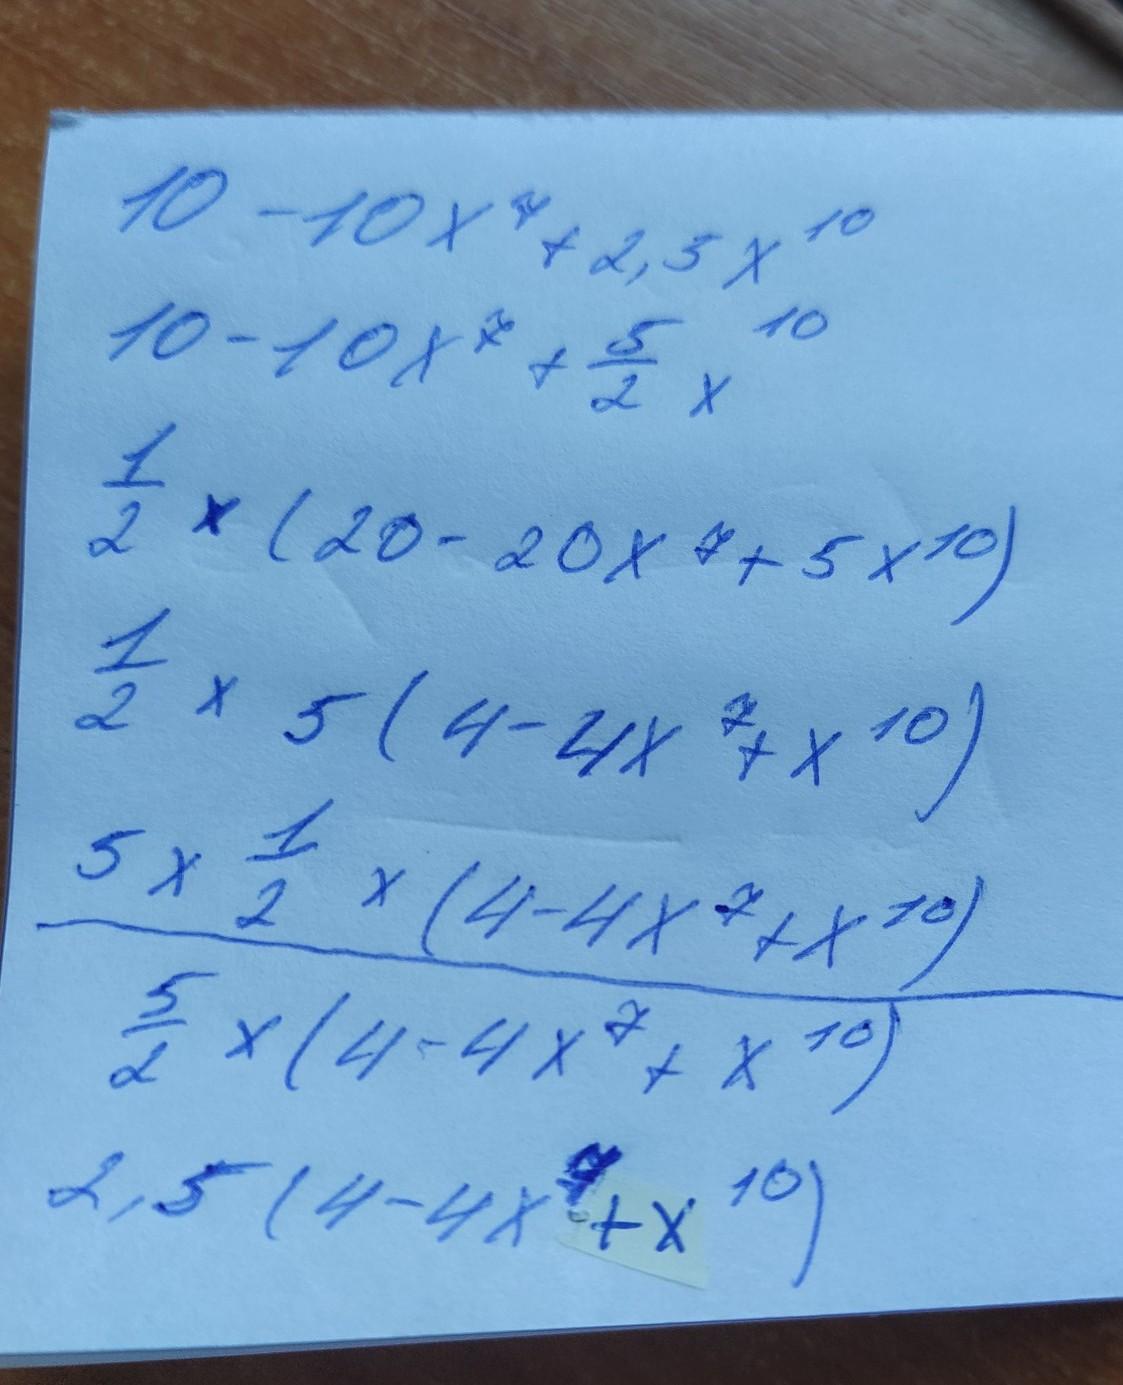 10 - 10x⁷ + 2,5x¹⁰
10 - 10x⁷ + 5/2 x¹⁰
1/2 × (20 - 20x⁷ + 5x¹⁰)
1/2 × 5(4 - 4x⁷ + x¹⁰)
5 × 1/2 × (4 - 4x⁷ + x¹⁰)
5/2 × (4 - 4x⁷ + x¹⁰)
2,5(4 - 4x⁷ + x¹⁰)